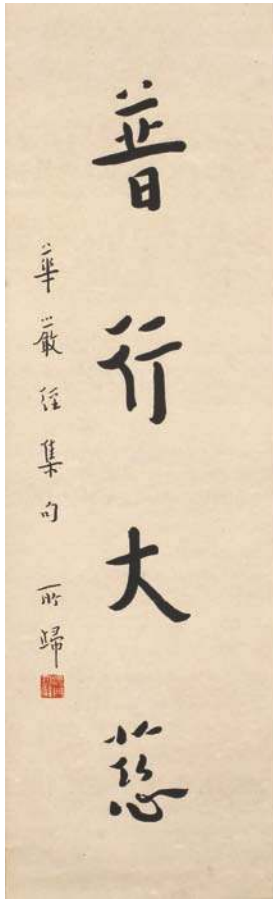 普行大慈
華嚴經集句 所歸